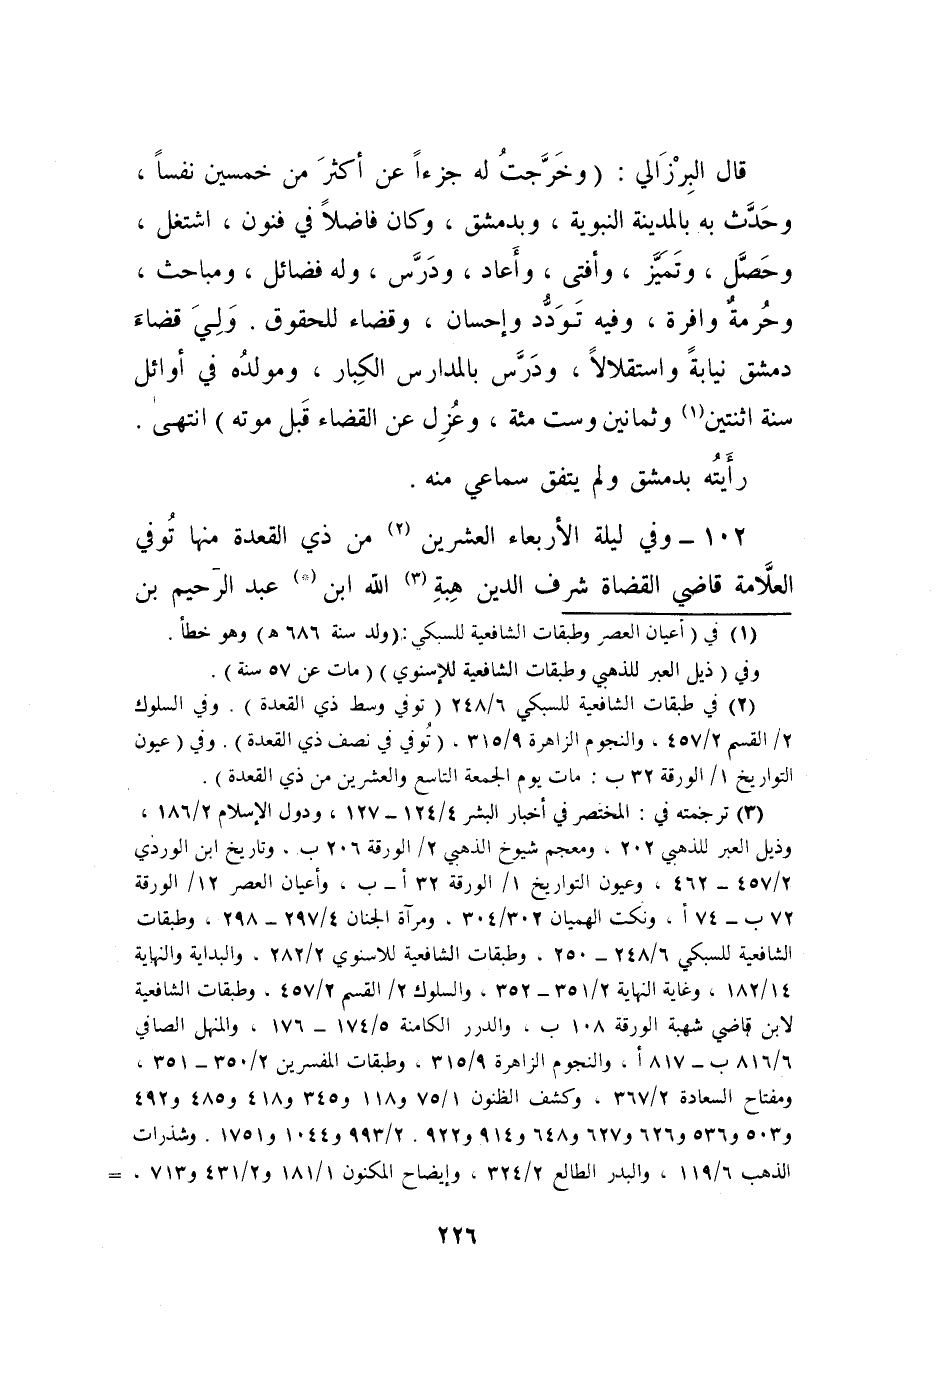 قال البِرْزَالي : ( وخَرَّجتُ له جزءاً عن أكثرَ من خمسين نفساً ،
وحَدَّث به بالمدينة النبوية ، وبدمشق ، وكان فاضلاً في فنون ، اشتغل ،
وحَصَّل ، وتَمَيَّز ، وأفتى ، وأَعاد ، ودَرَّس ، وله فضائل ، ومباحث ،
وحُرمةٌ وافرة ، وفيه تَوَدُّد وإحسان ، وقضاء للحقوق . وَلِيَ قضاءَ
دمشق نيابةً واستقلالاً ، ودَرَّس بالمدارس الكِبار ، ومولدُه في أوائل
سنة اثنتين(١) وثمانين وست مئة ، وعُزِل عن القضاء قَبل موته ) انتهىٰ .
رأَيتُه بدمشق ولم يتفق سماعي منه .
١٠٢ ــ وفي ليلة الأربعاء العشرين (٢) من ذي القعدة منها تُوفي
العلَّامة قاضي القضاة شرف الدين هِبةِ (٣) الله ابن (*) عبد الرّحيم بن
(١) في ( أعيان العصر وطبقات الشافعية للسبكي :(ولد سنة ٦٨٦ هـ) وهو خطأ .
وفي ( ذيل العبر للذهبي وطبقات الشافعية للإسنوي ) ( مات عن ٥٧ سنة ) .
(٢) في طبقات الشافعية للسبكي ٢٤٨/٦ ( توفي وسط ذي القعدة ) . وفي السلوك
٢/ القسم ٤٥٧/٢ ، والنجوم الزاهرة ٣١٥/٩ . ( تُوفي في نصف ذي القعدة ) . وفي ( عيون
التواريخ ١/ الورقة ٣٢ ب : مات يوم الجمعة التاسع والعشرين من ذي القعدة ) .
(٣) ترجمته في : المختصر في أخبار البشر ١٢٤/٤ ــ ١٢٧ ، ودول الإسلام ١٨٦/٢ ،
وذيل العبر للذهبي ٢٠٢ ، ومعجم شيوخ الذهبي ٢/ الورقة ٢٠٦ ب . وتاريخ ابن الوردي
٤٥٧/٢ ــ ٤٦٢ ، وعيون التواريخ ١/ الورقة ٣٢ أ ــ ب ، وأعيان العصر ١٢/ الورقة
٧٢ ب ــ ٧٤ أ ، ونكت الهميان ٣٠٤/٣٠٢ . ومرآة الجنان ٢٩٧/٤ ــ ٢٩٨ ، وطبقات
الشافعية للسبكي ٢٤٨/٦ ــ ٢٥٠ . وطبقات الشافعية للاسنوي ٢٨٢/٢ . والبداية والنهاية
١٨٢/١٤ ، وغاية النهاية ٣٥١/٢ ــ ٣٥٢ ، والسلوك ٢/ القسم ٤٥٧/٢ . وطبقات الشافعية
لابن قاضي شهبة الورقة ١٠٨ ب ، والدرر الكامنة ١٧٤/٥ ــ ١٧٦ ، والمنهل الصافي
٨١٦/٦ ب ــ ٨١٧ أ ، والنجوم الزاهرة ٣١٥/٩ ، وطبقات المفسرين ٣٥٠/٢ ــ ٣٥١ ،
ومفتاح السعادة ٣٦٧/٢ ، وكشف الظنون ٧٥/١ و١١٨ و٣٤٥ و٤١٨ و٤٨٥ و٤٩٢
و٥٠٣ و٥٣٦ و٦٢٦ و٦٢٧ و٦٤٨ و٩١٤ و٩٢٢ . ٩٩٣/٢ و١٠٤٤ و١٧٥١ . وشذرات
الذهب ١١٩/٦ ، والبدر الطالع ٣٢٤/٢ ، وإيضاح المكنون ١٨١/١ و٤٣١/٢ و٧١٣ . =
٢٢٦